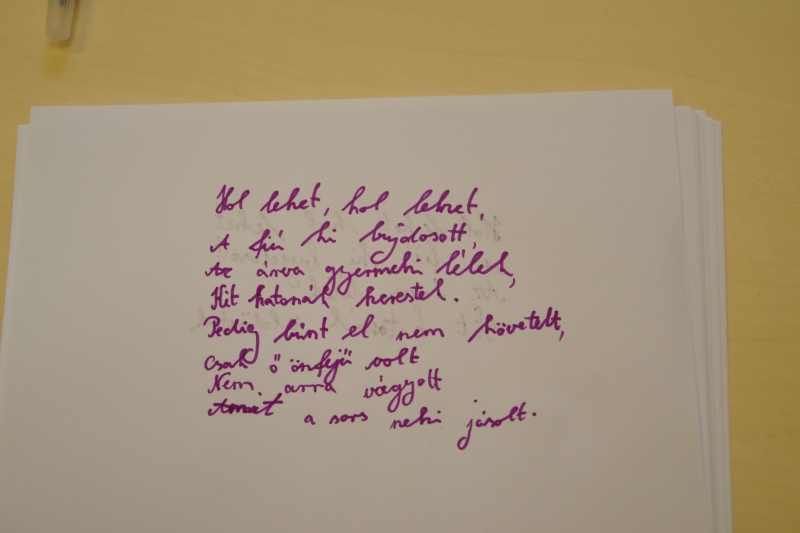 Hol lehet, hol lehet,
A fiú ki bujdosott,
Az árva gyermeki lélek,
Kit katonák kerestek.
Pedig bűnt el nem követett,
Csak ő önfejű volt
Nem arra vágyott
Amit a sors neki jósolt.